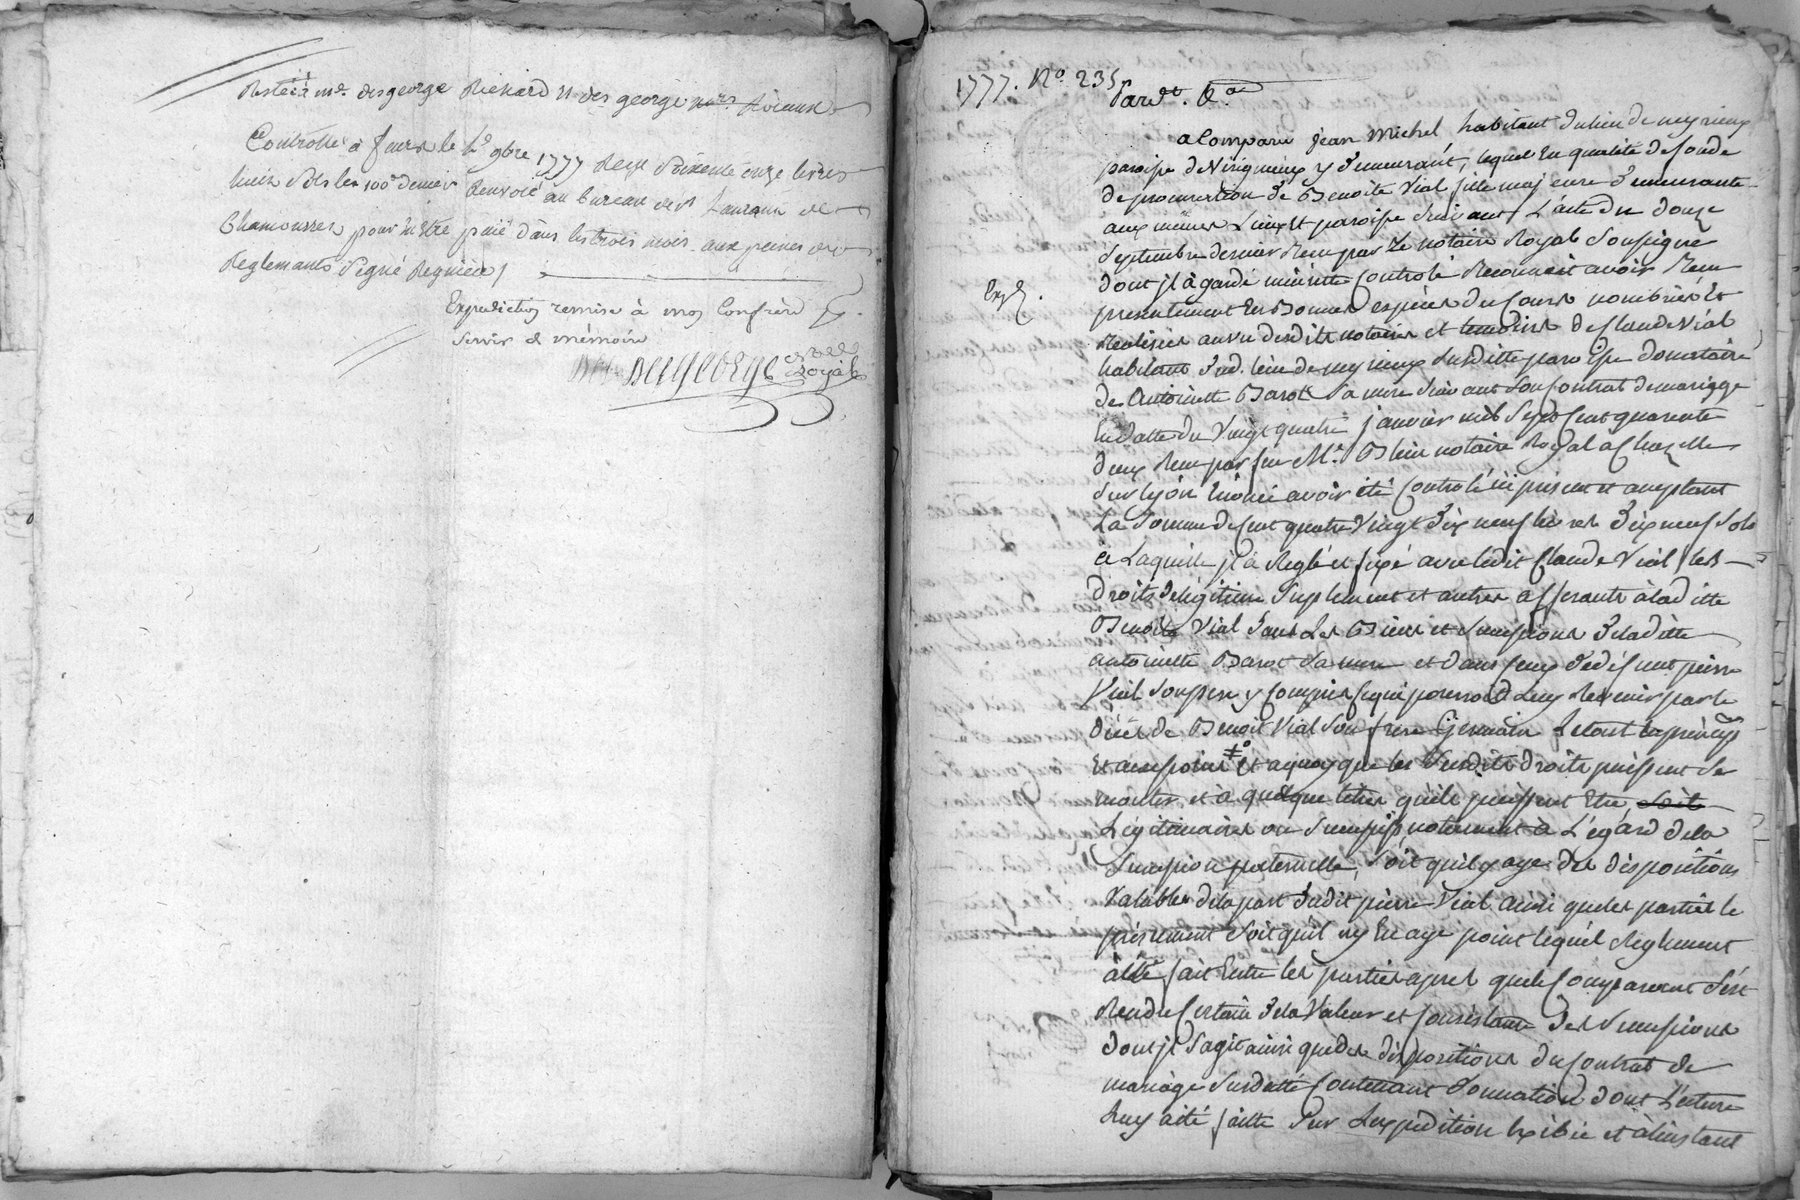 Resté à me. desgeorge Richard et des george nres
Controllé à feurs le 9bre 1777 Reçu Soixante onze livres
huit sols les 100e denier Renvoié au bureau de st Laurent de
Chamousset pour y Etre paié dans les trois mois aux peines des
Reglements Signé Regnier
Expedition remise à mon Confrère
Servir de mémoire
Desgeorge Royal
1777. No. 235
Pardt.
a Comparu jean Michel habitant du lieu de meyrieux
paroisse de Virigneux y demeurant, lequel En qualité de fondé
de procuration de Benoite Vial fille majeure demeurante
aux mêmes Lieu et paroisse suivant L'acte du douze
Septembre dernier Reçu par Le notaire Royal Soussigné
dont jl à gardé minutte Controlé Reconnoit avoir Reçu
Exp.
presentement En Bonnes espèces du Cours nombrées Et
Réalisées au vu desdits notaires et temoins de Claude Vial
habitant dud. lieu de meyrieux Susditte paroisse donataire
de Antoinette Barot Sa mere Suivant Son Contrat de mariage
En datte du Vingt quatre janvier mil Sept Cent quarente
deux Reçu par feu Me. Blein notaire Royal a Chazelle
Sur lyon Enoncé avoir été Controlé ici présent et aceptant
La Somme de Cent quatre Vingt dix neuf livres dix neuf sols
à Laquelle jl à Reglé et fixé avec ledit Claude Vial les
droits de légitime Suplement et autres afferants à laditte
Benoite Vial dans Les Biens et Successions de laditte
antoinette Barot Sa mere et dans Ceux de défunt pierre
Vial Son pere y Compris Ce qui pouroit Luy Revenir par le
décés de Benoit Vial Son frere Germain Le tout En principal
Et accessoires Et a quoy que les Susdits droits puissent Se
monter et à quelque titre qu'ils puissent Etre
Légitimaires ou Successifs notament à L'égard de la
Succession paternelle, Soit qu'il y aye des dispositions
Valables de la part dudit pierre Vial ainsi que les parties le
présument Soit qu'il n'y En aye point lequel Reglement
à été fait Entre les parties apres que le Comparant S'est
Rendu Certain de la Valeur et Consistance des Successions
dont jl S'agit ainsi que des dispositions du Contrat de
mariage Susdatté Contenant donation dont Lecture
Luy a été faitte Sur Lexpédition Exibée et à linstant